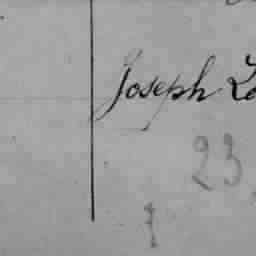 Joseph
23